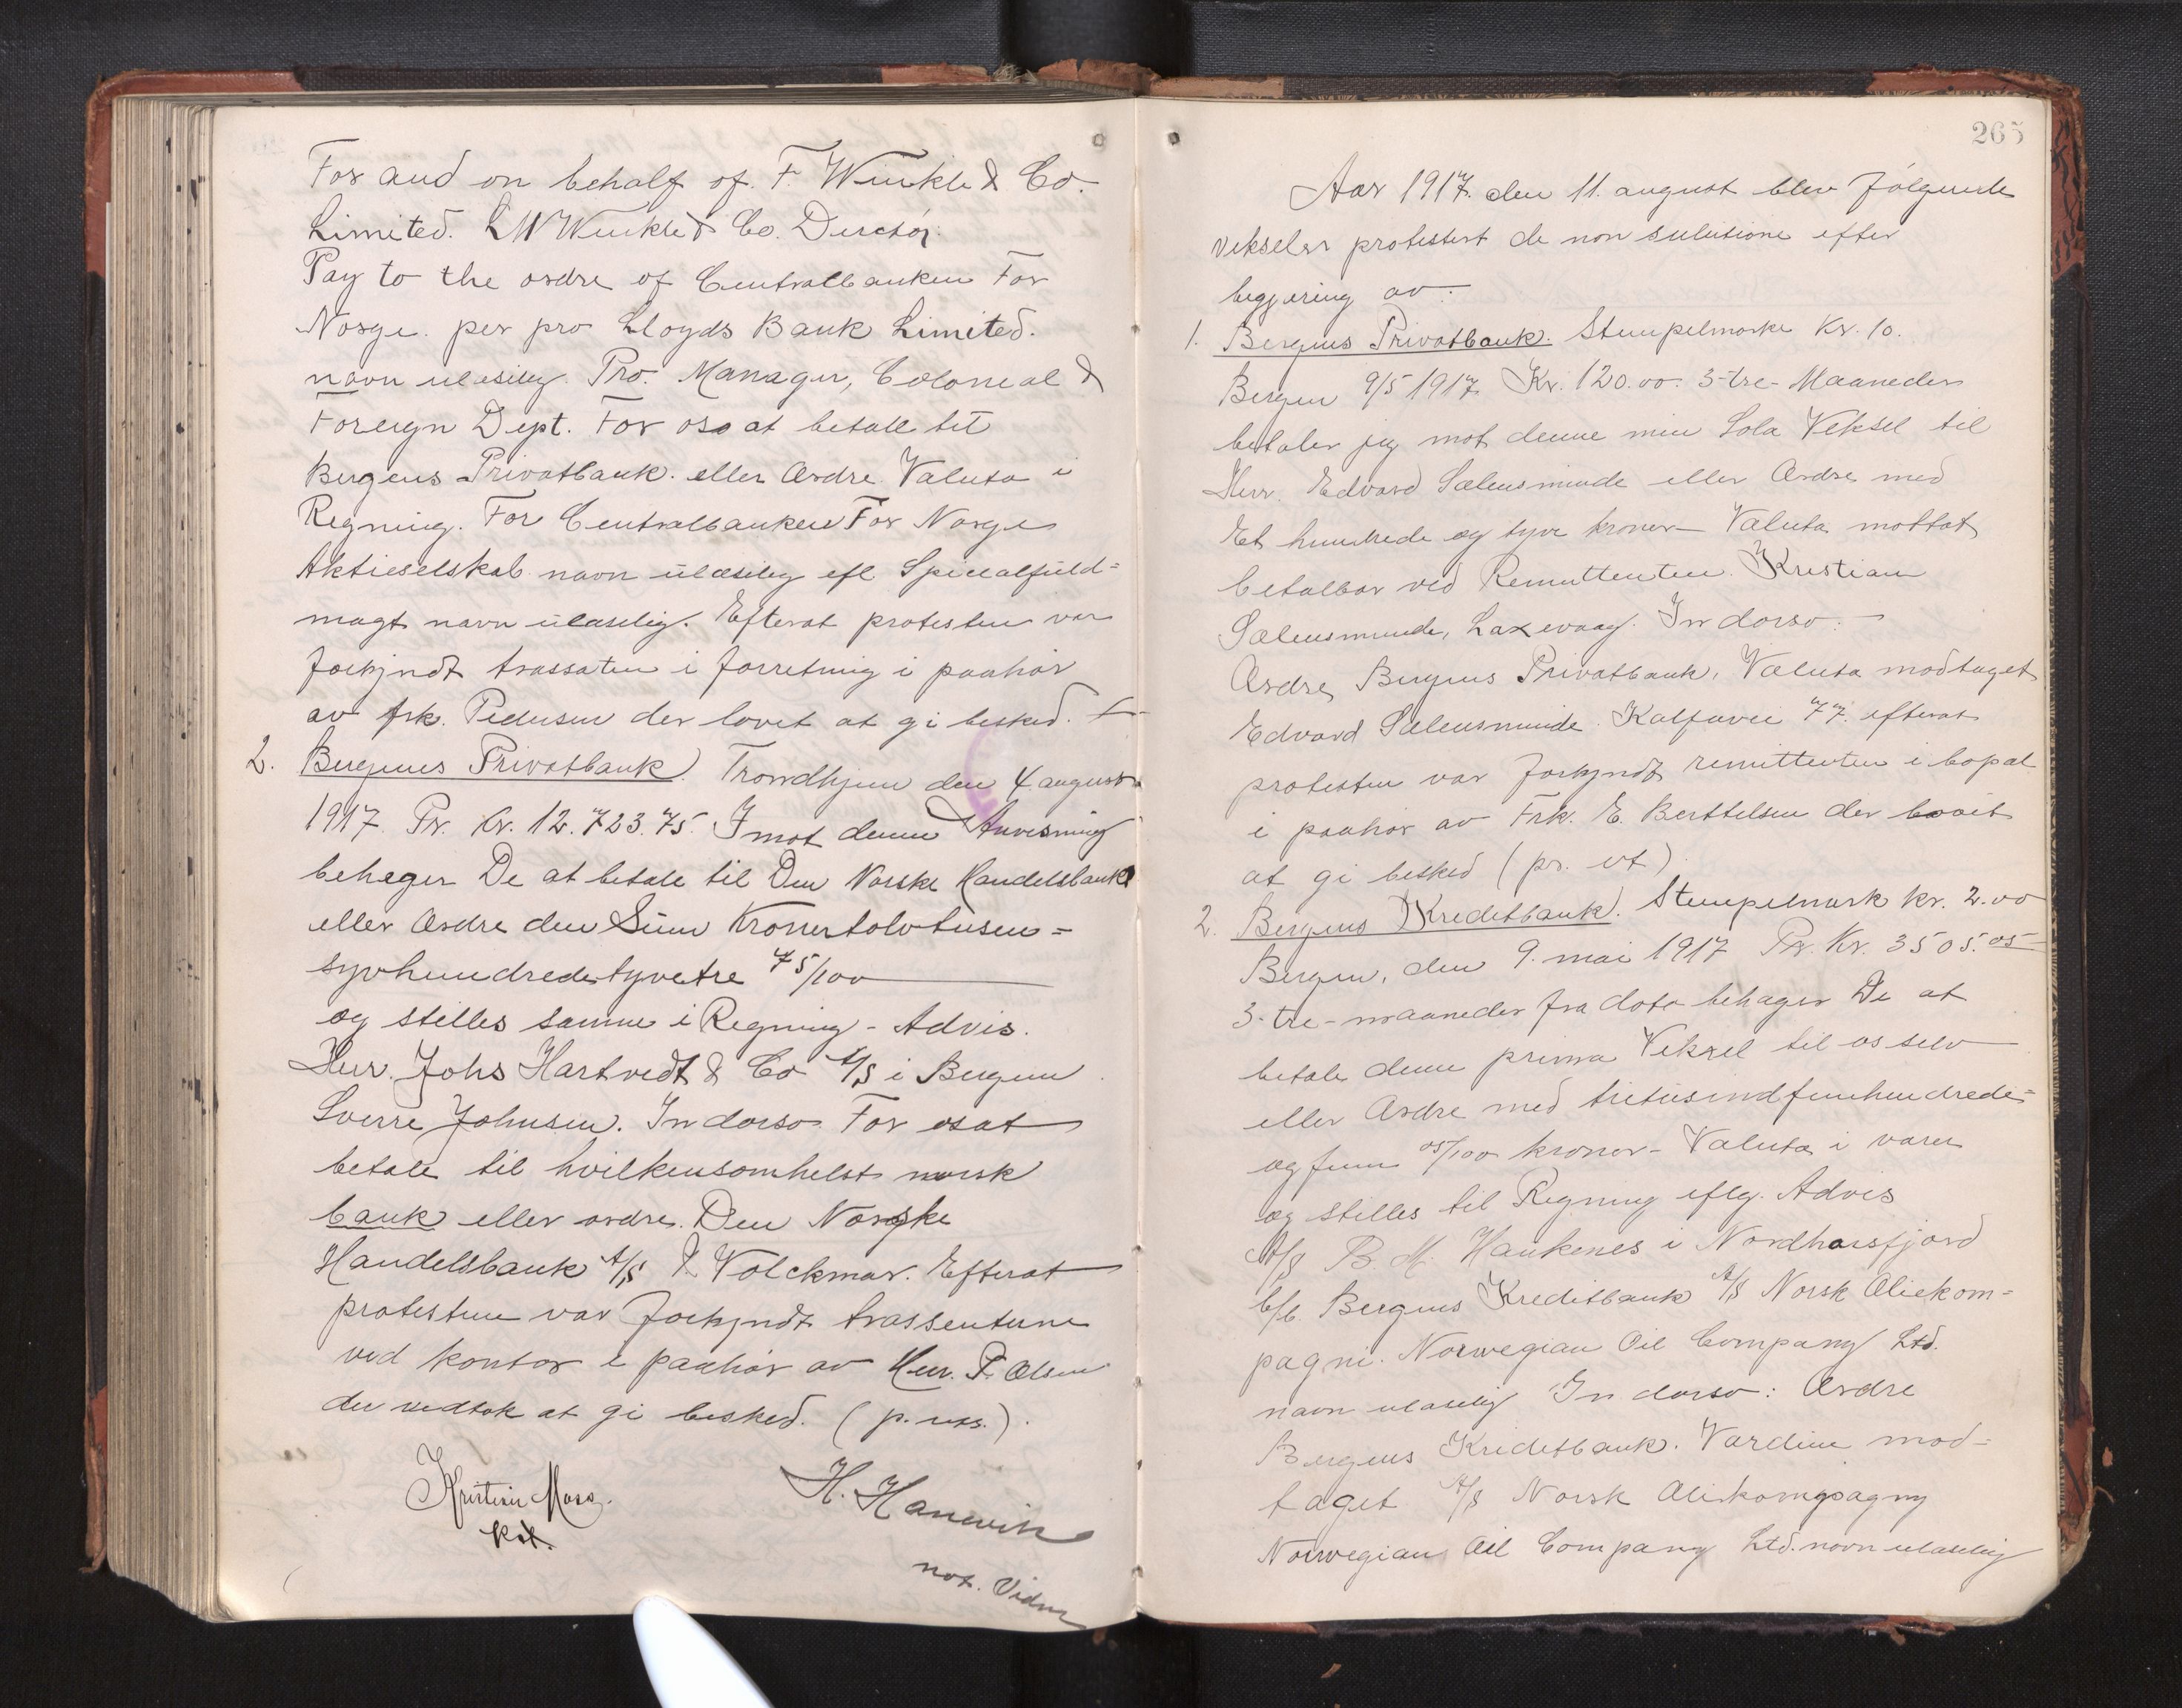 For and on behalf of. F. Winkle & Co.
Limited. L W Winkle & Co. Director.
Pay to the ordre of Centralbanken For
Norge. per pro Lloyds Bank Limited.
navn ulæselig. Pro. Manager, Colonial &
Foreign Dept. For oss at betale til
Bergens Privatbank. eller Ordre Valuta i
Regning. For Centralbanken For Norge
Aktieselskab navn ulæselig efl. Specialfuld=
magt navn ulæselig. Efterat protesten var
forkyndt trassaten i forretning i paahør
av frk. Pedersen der lovet at gi besked.
2. Bergens Privatbank. Trondhjem den 4 august
1917. Pr. Kr. 12.723.75. Imot denne Anvisning
behager De at betale til Den Norske Handelsbank
eller Ordre den Sum Kroner tolvtusen=
syvhundredetyvetre 75/100
og stilles samme i Regning - Advis.
Herr. Johs Hartvedt & Co A/S i Bergen
Sverre Johnsen. In dorso For os at
betale til hvilkensomhelst norsk
bank eller ordre. Den Norske
Handelsbank A/S Volckmar. Efterat
protesten var forkyndt trassentene
ved kontor i paahør av Herr. P. Olsen
der vedtok at gi besked. (p. uts.).
Kristian Moss.
kst.
H. Hanevik
not. Vidne
265
Aar 1917. den 11. august blev følgende
veksler protestert de non solutione efter
begjæring av:
1. Bergens Privatbank. Stempelmerke Kr. 10.
Bergen 9/5 1917 Kr. 120.00. 3-tre-Maaneder
betaler jeg mot denne min Sola Veksel til
Herr. Edvard Sælensminde eller Ordre med
Et hundrede og tyve kroner - Valuta mottat
betalbar ved Remittenten. Kristian
Sælensminde, Laxevaag. In dorso: -
Ordre Bergens Privatbank, Valuta modtaget
Edvard Sælensminde. Kalfarvei 77. efterat
protesten var forkyndt remittenten i bopæl
i paahør av Frk. E. Berttelsen der lovet
at gi besked (pr. ut)
2. Bergens Kreditbank. Stempelmerk kr. 2.00
Bergen, den 9. mai 1917 Pr. Kr. 3505.05
3-tre-maaneder fra dato behager De at
betale denne prima Veksel til os selv
eller Ordre med tretusindfemhundrede=
og fem 05/100 kroner - Valuta i varer
og stilles til Regning eflg. Advis
A/S B. M. Haukenes i Nordhorsfjord
b/b. Bergens Kreditbank A/S Norsk Oliekom=
pagni. Norwegian Oil Company Ltd.
navn ulæselig In dorso: Ordre
Bergens Kreditbank. Værdien mod=
taget A/S Norsk Oliekompagny
Norwegian Oil Company Ltd. navn ulæselig